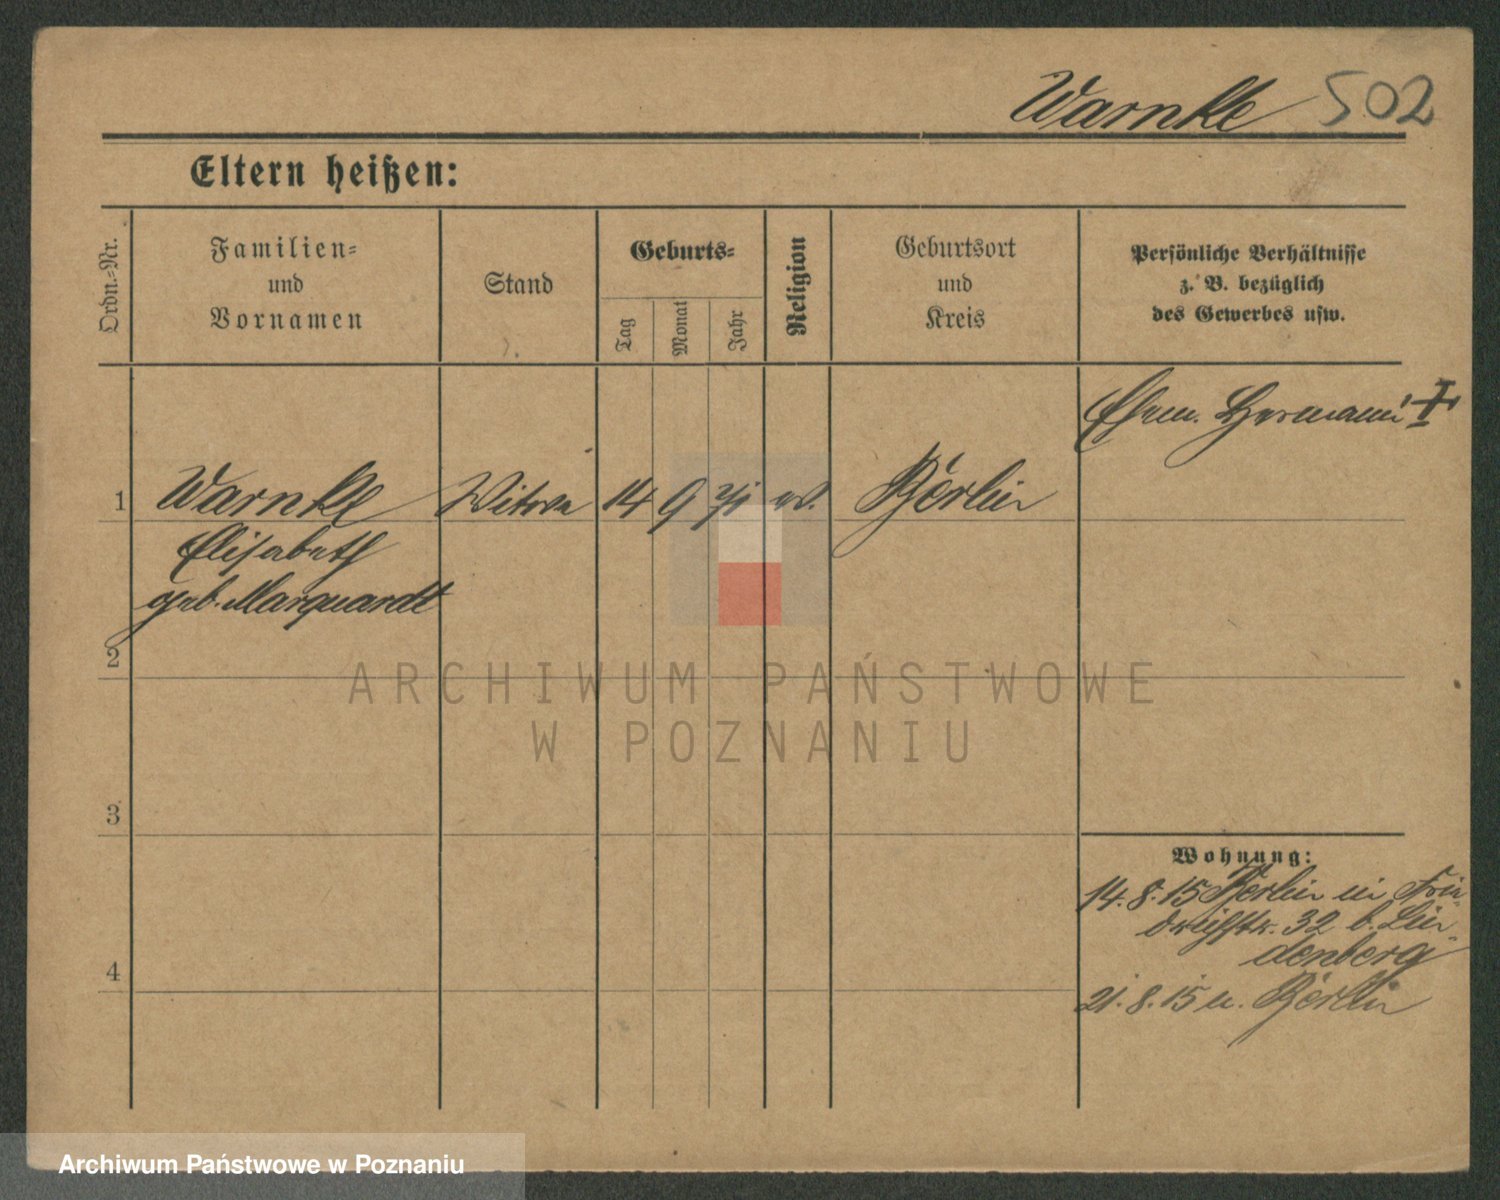 Warnke 502
Eltern heißen:
Ordn.-Nr.
Familien-
und
Vornamen
Stand
Geburts-
Tag
Monat
Jahr
Religion
Geburtsort
und
Kreis
Persönliche Verhältnisse
z. B. bezüglich
des Gewerbes usw.
Ehem. Hermann †
1 Warnke Witwe 14 9 ev. Berlin
Elisabeth
geb. Marquardt
2
3
4
Wohnung:
14.8.15 Berlin in Frie-
drichstr. 32 b. Lin-
denberg
21.8.15 n. Berlin
ARCHIWUM PAŃSTWOWE
W POZNANIU
Archiwum Państwowe w Poznaniu